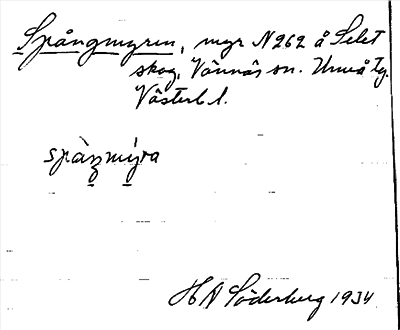 Spångmyren, myr N262 å Selet
skog, Vännäs sn. Umeå tg.
Västerb l.
spàŋmýra
H N Söderberg 1934